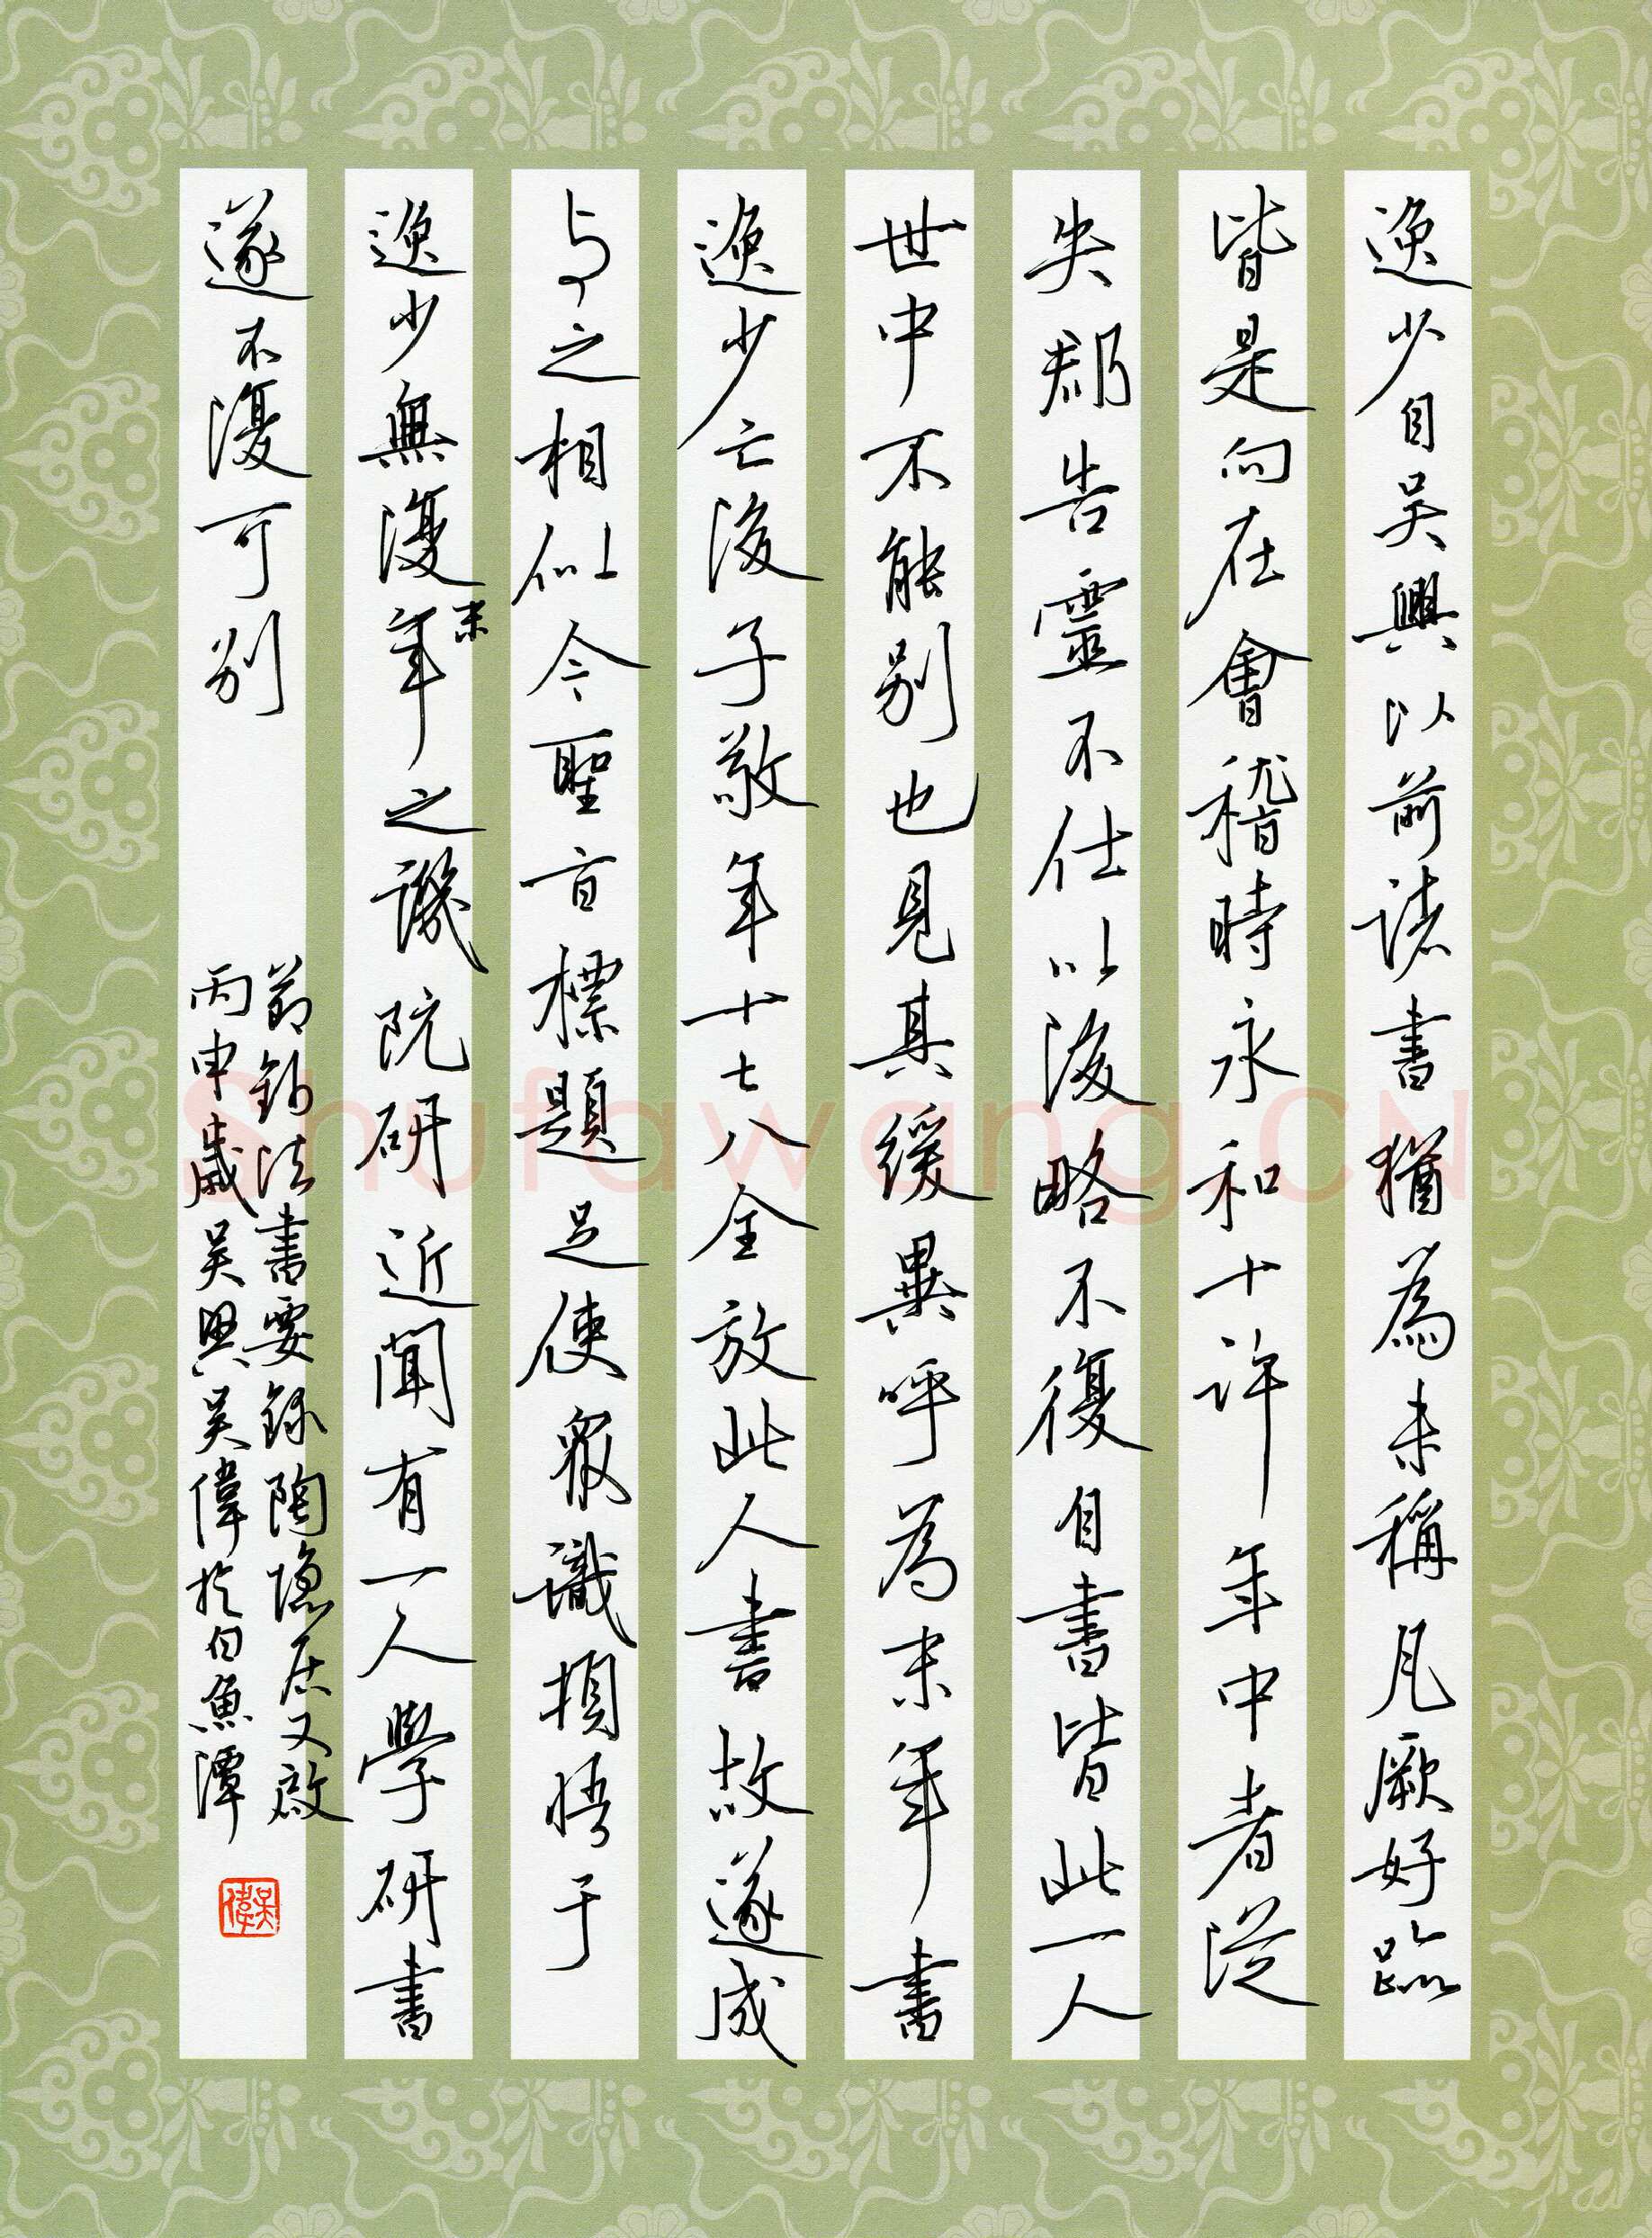 逸少自吴興以前諸書猶為未稱凡厥好跡
皆是向在會稽時永和十許年中者從
失郡告靈不仕以後略不復自書皆此一人
世中不能别也見其緩異呼為末年書
逸少亡後子敬年十七八全放此人書故遂成
与之相似今聖旨標題足使衆識頓悟于
逸少無復末年之譏阮研近聞有一人學研書
遂不復可别
節鈔法書要録陶隐居又啟
丙申歲吴興吴偉於白魚潭
吴偉
Shufawang.CN